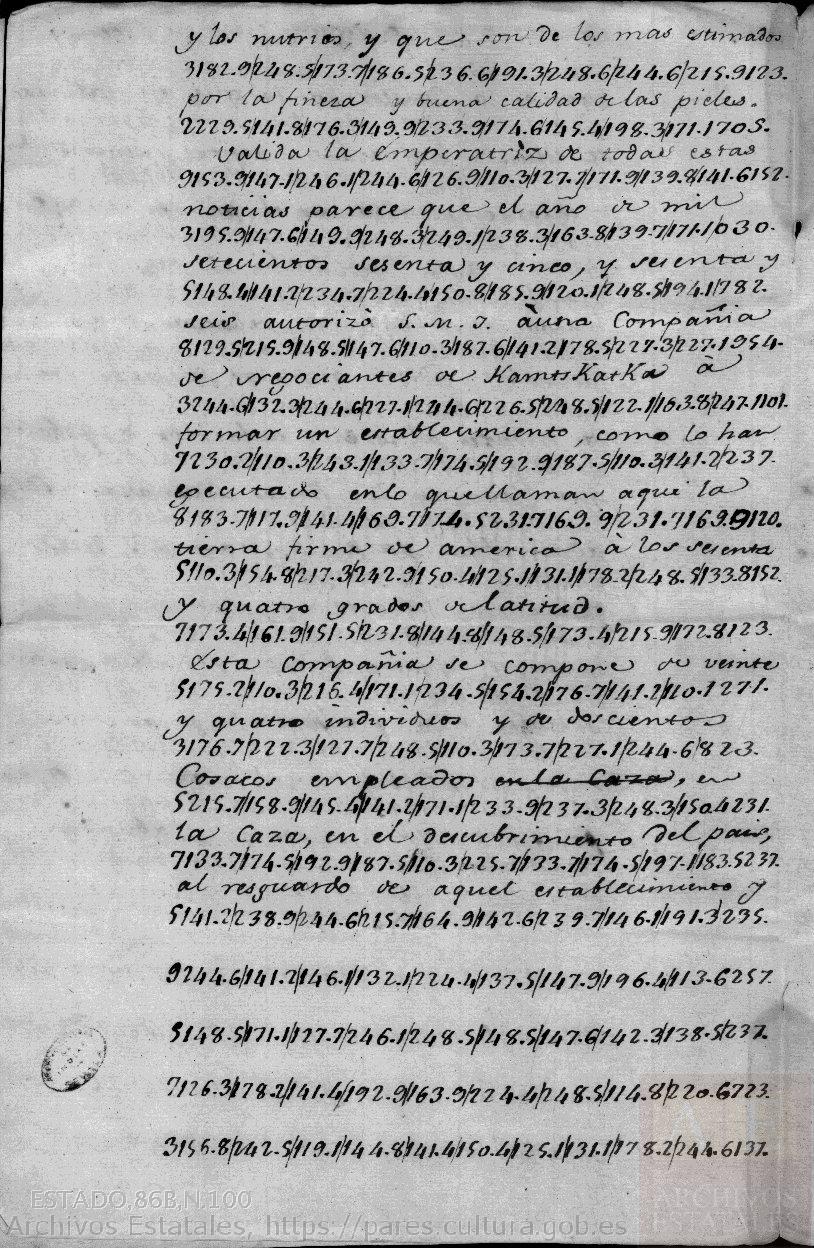 y las nutrias, y que son de los mas estimados
3182.9/248.5/173.7/186.5/236.6/191.3/248.6/244.6/215.9123.
por la fineza y buena calidad de las pieles.
2229.5/141.8/176.3/149.9/233.9/174.6/145.4/198.3/171.1705.
Valida la Emperatriz de todas estas
9153.9/147.1/246.1/244.6/126.9/110.3/127.7/171.9/139.8/141.6152.
noticias parece que el año de mil
3195.9/147.6/149.9/248.3/249.1/238.3/163.8/139.7/171.1/030.
setecientos sesenta y cinco, y sesenta y
5148.4/141.2/234.7/224.4/150.8/185.9/120.1/248.5/194.1/782.
seis autorizò S. M. I. àuna Compañia
8129.5/215.9/148.5/147.6/110.3/187.6/141.2/178.5/227.3/227.1954.
de negociantes de KamtsKatKa à
3244.6/132.3/244.6/227.1/244.6/226.5/248.5/122.1/163.8/247.1101.
formar un establecimiento, como lo han
7230.2/110.3/243.1/133.7/174.5/192.9/187.5/110.3/141.2/237.
egecutado enlo quellaman aqui la
8183.7/117.9/141.4/169.7/174.5231.7169.9/231.7169.9120.
tierra firme de america à los sesenta
5110.3/154.8/217.3/242.9/150.4/125.1/131.1/178.2/248.5/133.8152.
y quatro grados de latitud.
7173.4/161.9/151.5/231.8/144.8/148.5/173.4/215.9/172.8123.
Esta Compañia se compone de veinte
5175.2/110.3/216.4/171.1234.5/154.2/176.7/141.2/110.1271.
y quatro individuos y de doscientos
3176.7/222.3/127.7/248.5/110.3/173.7/227.1/244.6/823.
Cosacos empleados en la Caza, en
5215.7/158.9/145.4/141.2/171.1/233.9/237.3/248.3/150.4231.
la Caza, en el descubrimiento del pais,
7133.7/174.5/192.9/187.5/110.3/225.7/133.7/174.5/197.1/183.5237.
al resguardo de aquel establecimiento y
5141.2/238.9/244.6/215.7/164.9/142.6/239.7/146.1/191.3/235.
9244.6/141.2/146.1/132.1/224.4/137.5/147.9/196.4/113.6257.
5148.5/171.1/127.7/246.1/248.5/148.5/147.6/142.3/138.5/237.
7126.3/178.2/141.4/192.9/163.9/224.4/248.5/114.8/220.6723.
3156.8/242.5/119.1/144.8/141.4/150.4/125.1/131.1/178.2/244.6137.
ESTADO,86B,N.100
Archivos Estatales, https://pares.cultura.gob.es
ARCHIVOS
ESTATALES